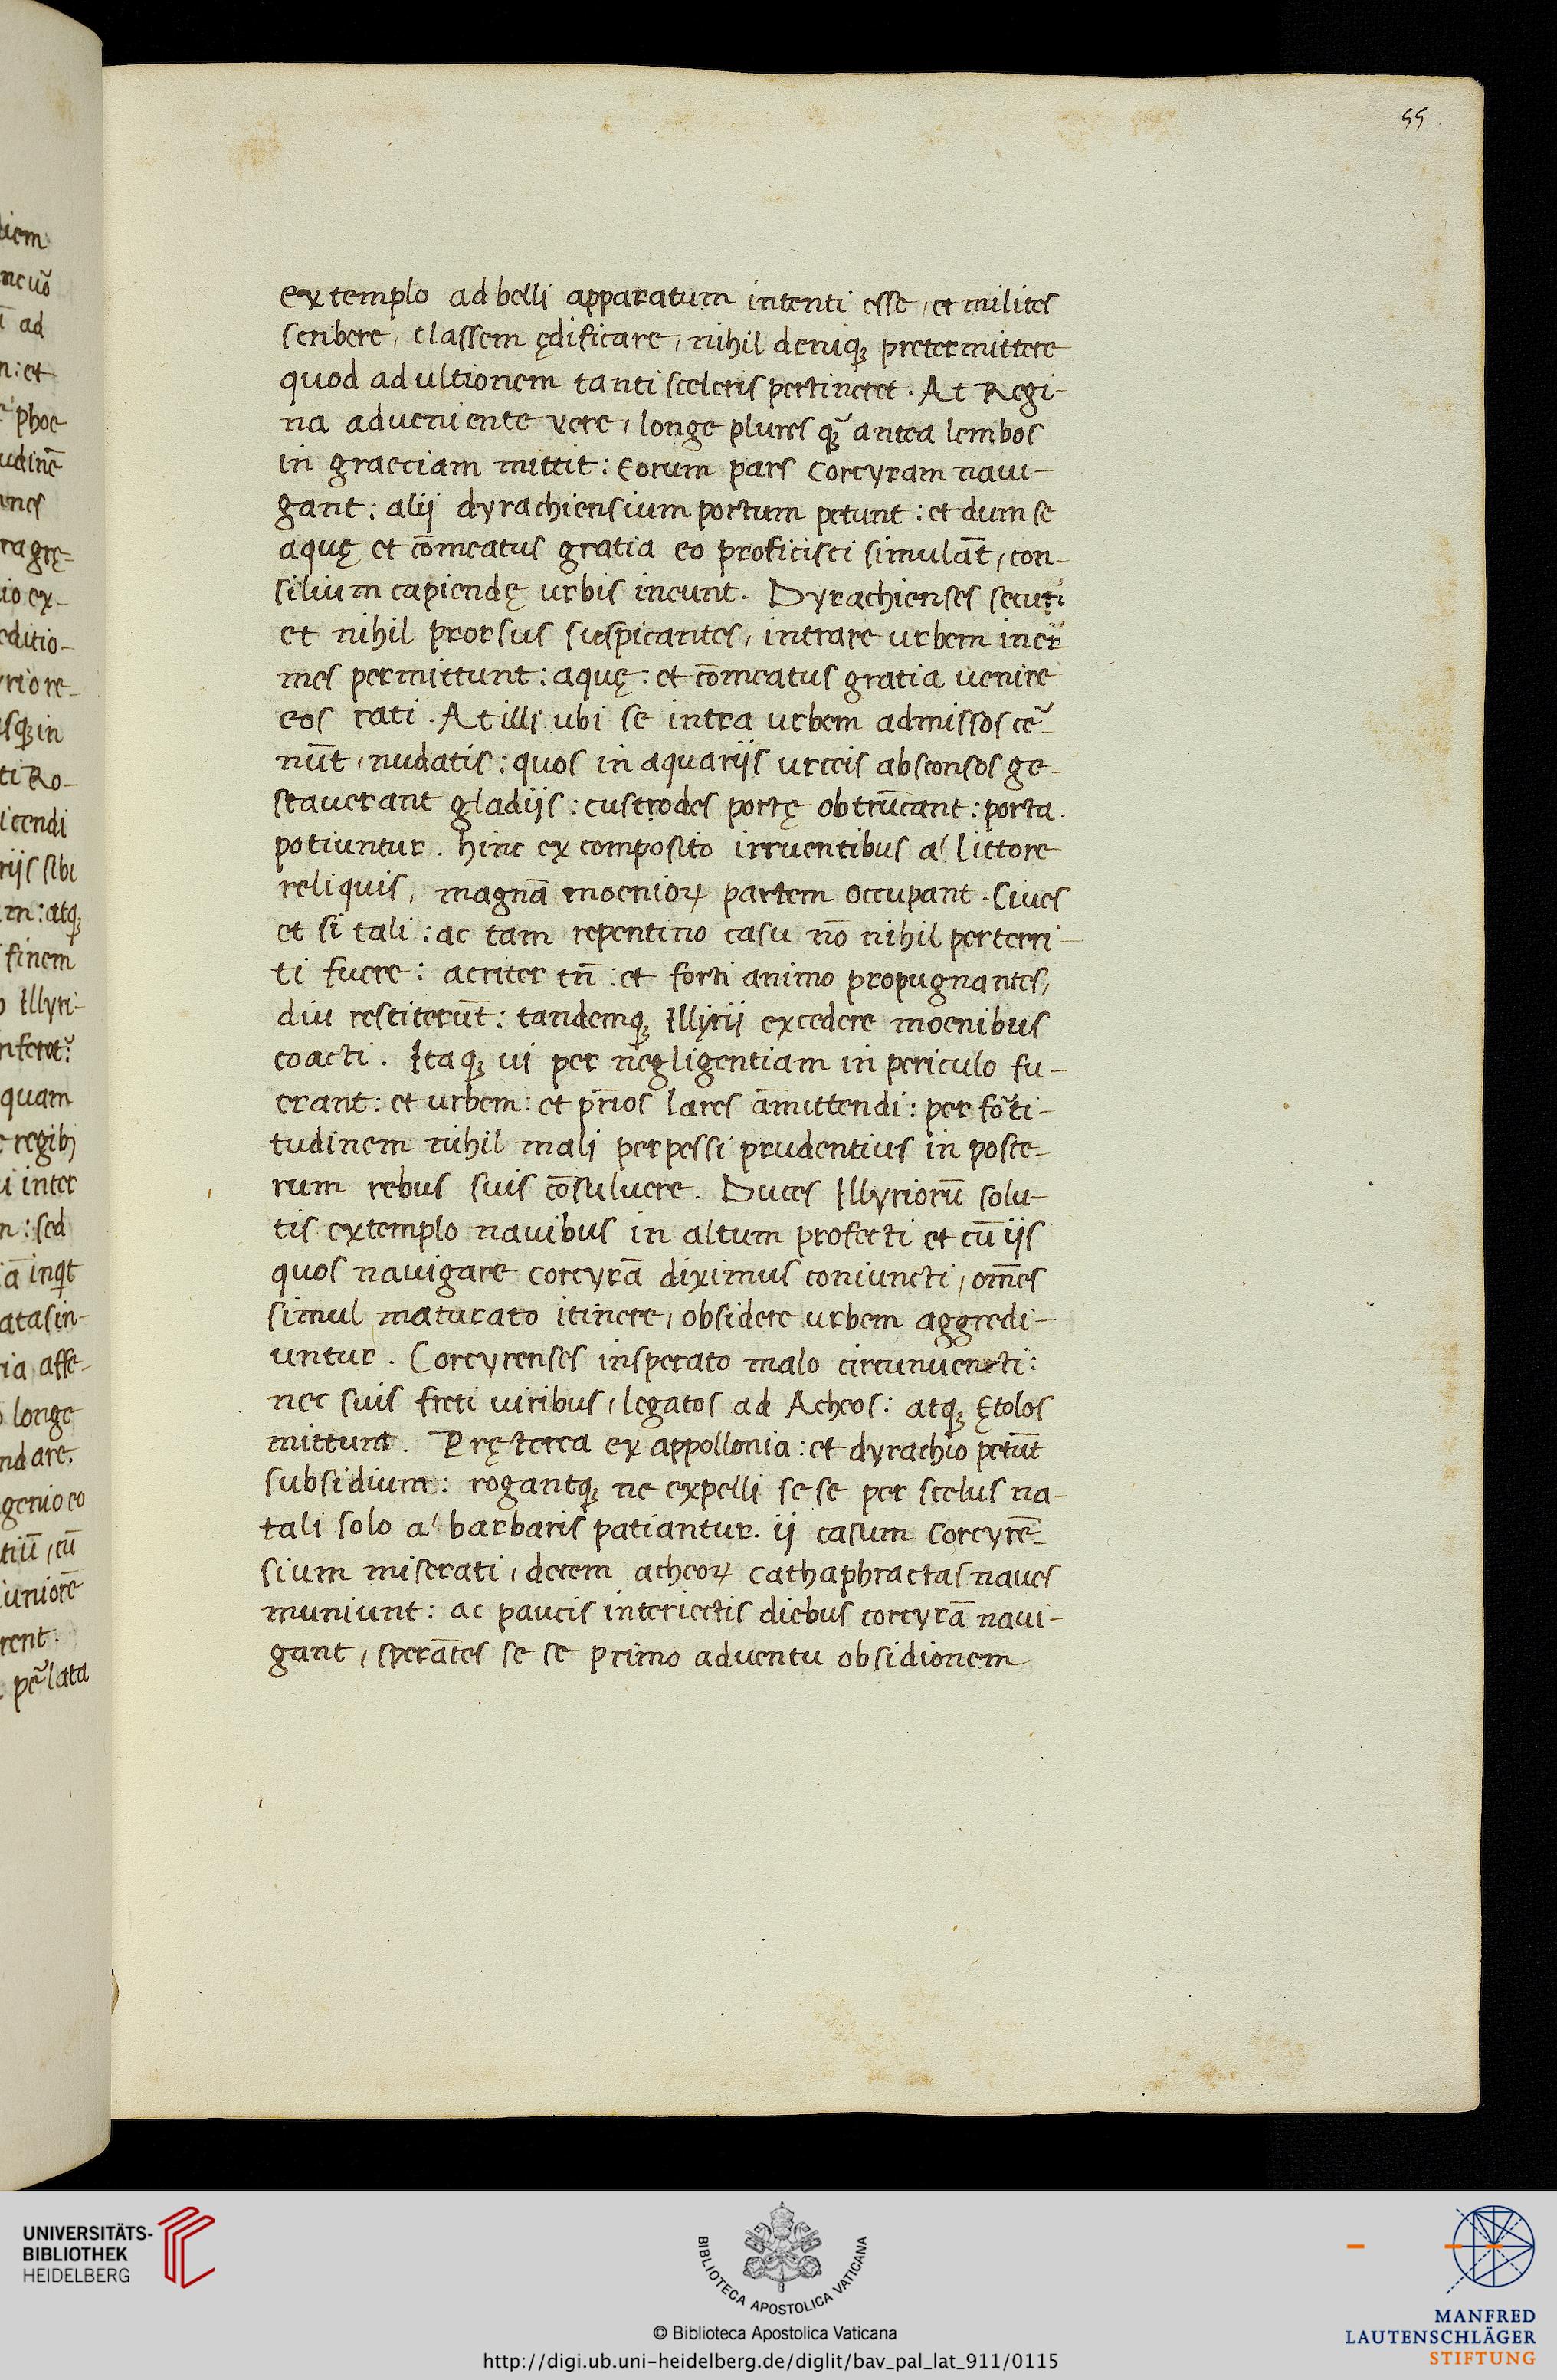 55
extemplo ad belli apparatum intenti esse, et milites
scribere, classem ędificare, nihil deniq; pretermittere
quod ad ultionem tanti sceleris pertineret. At Regi-
na adueniente vere, longe plures q̃ antea lembos
in graeciam mittit: Eorum pars Corcyram naui-
gant: alij dyrachiensium portum petunt: et dum se
aquę et cōmeatus gratia eo proficisci simulāt, con-
silium capiendę urbis ineunt. Dyrachienses securi
et nihil prorsus suspicantes, intrare urbem iner
mes permittunt: aquę: et cōmeatus gratia uenire
eos rati. At illi ubi se intra urbem admissos cer̃-
nūt, nudatis: quos in aquarijs urceis absconsos ge-
stauerant gladijs: custodes portę obtrūcant: porta.
potiuntur. hinc ex composito irruentibus a' littore
reliquis, magnā moenioꝝ partem occupant. Ciues
et si tali: ac tam repentino casu nō nihil perterri-
ti fuere: acriter tñ: et forti animo propugnantes,
diu restiterūt: tandemq; Illyrij excedere moenibus
coacti. Itaq; ui per negligentiam in periculo fu-
erant: et urbem: et pr̄ios lares āmittendi: per fōti-
tudinem nihil mali perpessi prudentius in poste-
rum rebus suis cōsuluere. Duces Illyriorū solu-
tis extemplo nauibus in altum profecti et cū ijs
quos nauigare corcyrā diximus coniuncti, om̄es
simul maturato itinere, obsidere urbem aggredi-
untur. Corcyrenses insperato malo circunuencti:
nec suis freti uiribus, legatos ad Acheos: atq; Ętolos
mittunt. Pręterea ex appollonia: et dyrachio petūt
subsidium: rogantq; ne expelli se se per scelus na-
tali solo a' barbaris patiantur. ij casum Corcyrē-
sium miserati, decem acheoꝝ cathaphractas naues
muniunt: ac paucis interiectis diebus corcyrā naui-
gant, sperātes se se primo aduentu obsidionem
UNIVERSITÄTS-
BIBLIOTHEK
HEIDELBERG
BIBLIOTECA APOSTOLICA VATICANA
© Biblioteca Apostolica Vaticana
http://digi.ub.uni-heidelberg.de/diglit/bav_pal_lat_911/0115
MANFRED
LAUTENSCHLÄGER
STIFTUNG